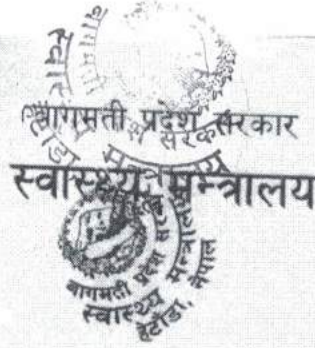 बागमती प्रदेश सरकार
स्वास्थ्य मन्त्रालय
बागमती प्रदेश सरकार
स्वास्थ्य मन्त्रालय
हेटौंडा, नेपाल